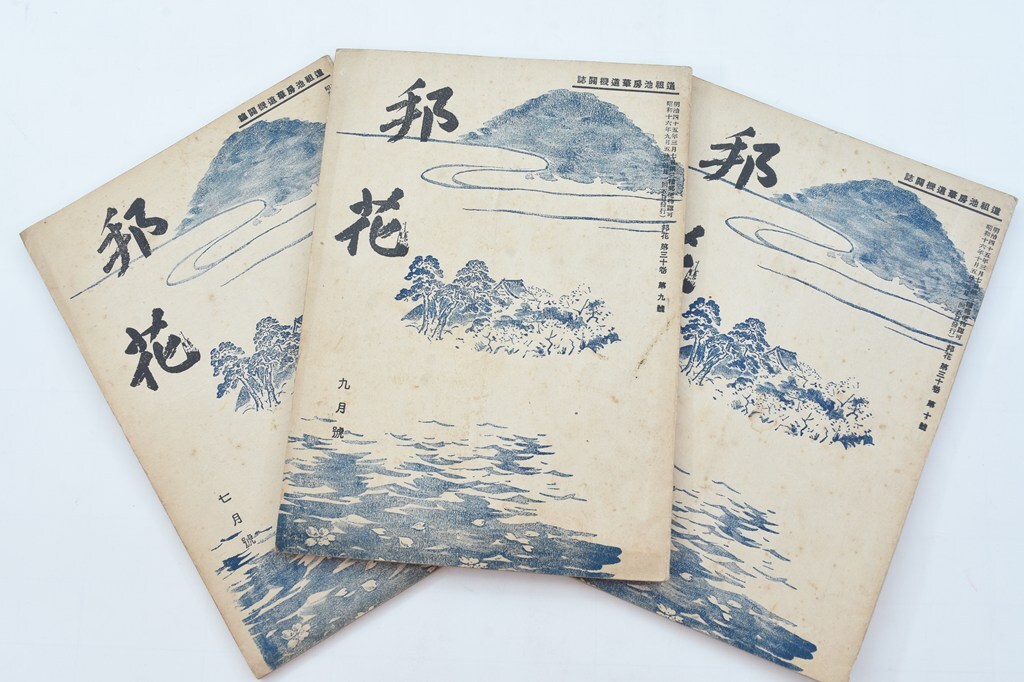 道祖池房華道機關誌
邦花
七月號
道祖池房華道機關誌
明治四十五年三月
昭和十六年九月五
認可
發行)
邦花 第三十卷 第九號
邦花
九月號
道祖池房華道機關誌
明治四十五年三月
昭和十六年十月五
認可
發行)
邦花 第三十卷 第十號
邦